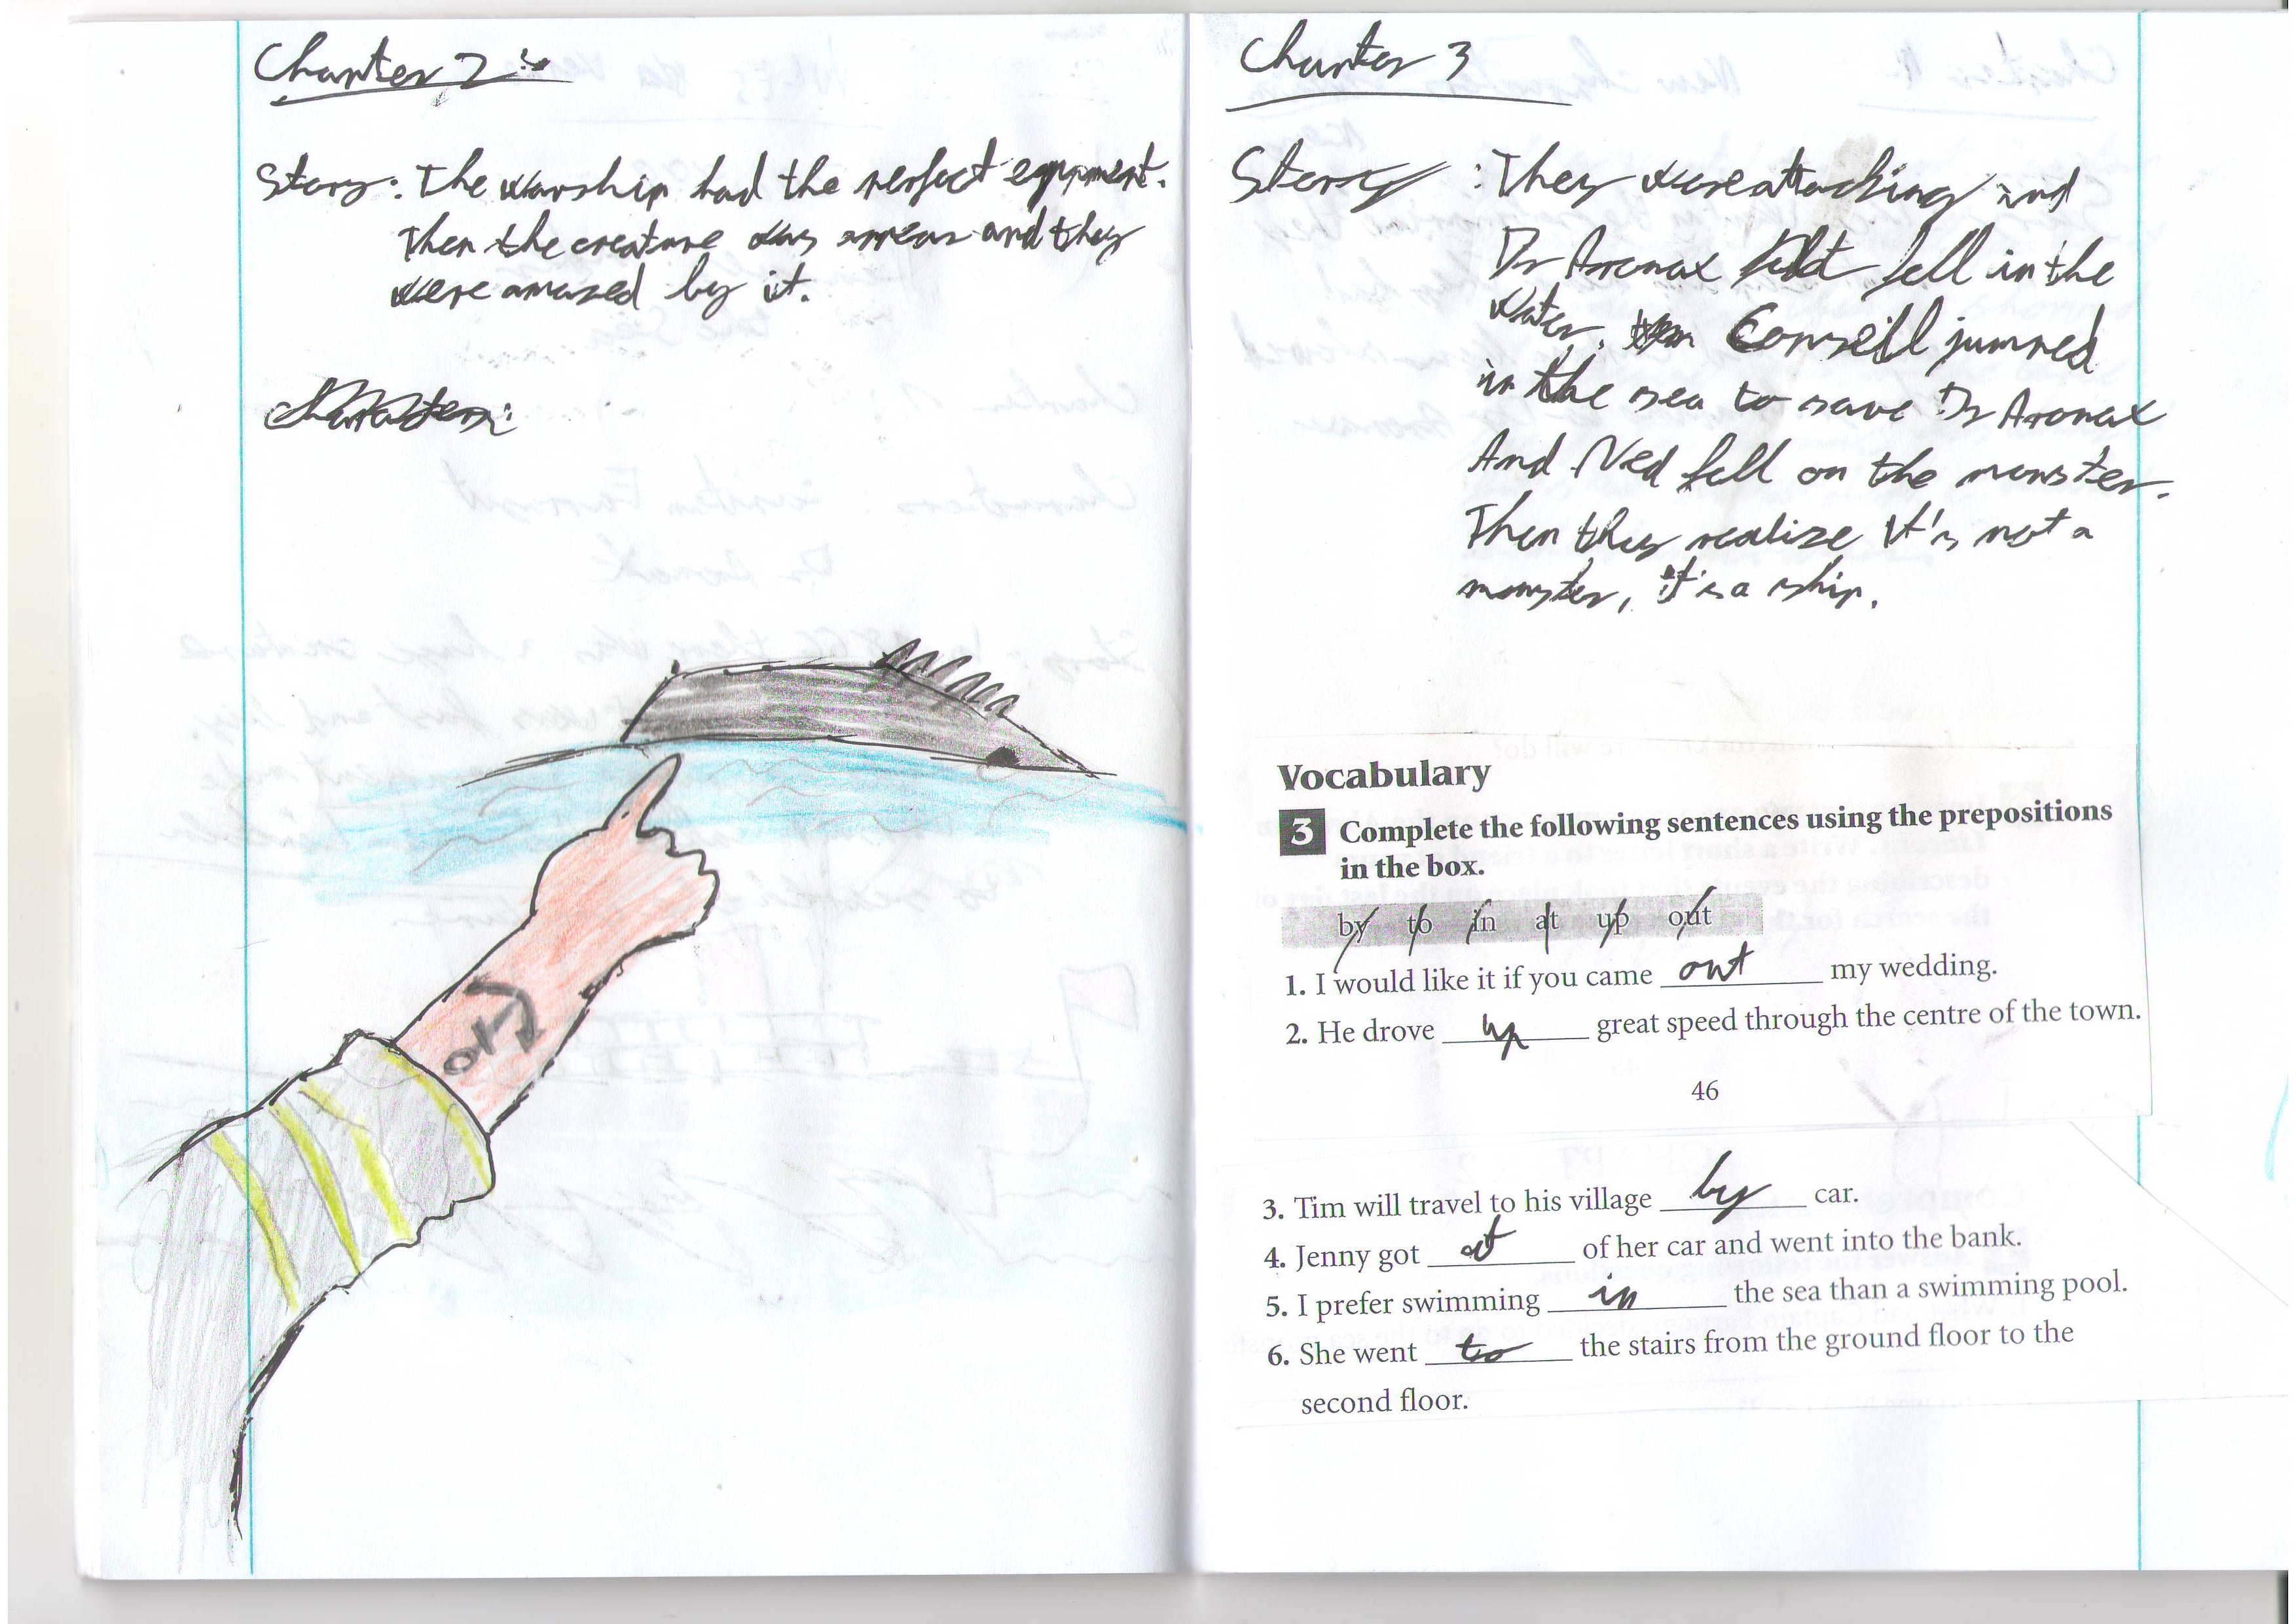 Chapter 2:
Story: The warship had the perfect equpment.
Then the creature was appear and they
were amazed by it.
Characters:
Chapter 3
Story: They were attacking and
Dr Aronax fell in the
water. Conseill jumped
in the sea to save Dr Aronax
And Ned fell on the monster.
Then they realize It's not a
monster, it's a ship.
Vocabulary
3 Complete the following sentences using the prepositions
in the box.
by to in at up out
1. I would like it if you came out my wedding.
2. He drove up great speed through the centre of the town.
46
3. Tim will travel to his village by car.
4. Jenny got at of her car and went into the bank.
5. I prefer swimming in the sea than a swimming pool.
6. She went to the stairs from the ground floor to the
second floor.